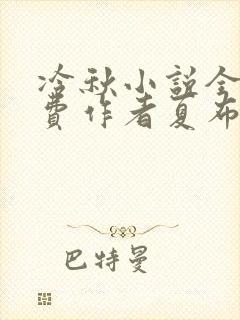 冷秋小说全
费作者夏布
巴特曼